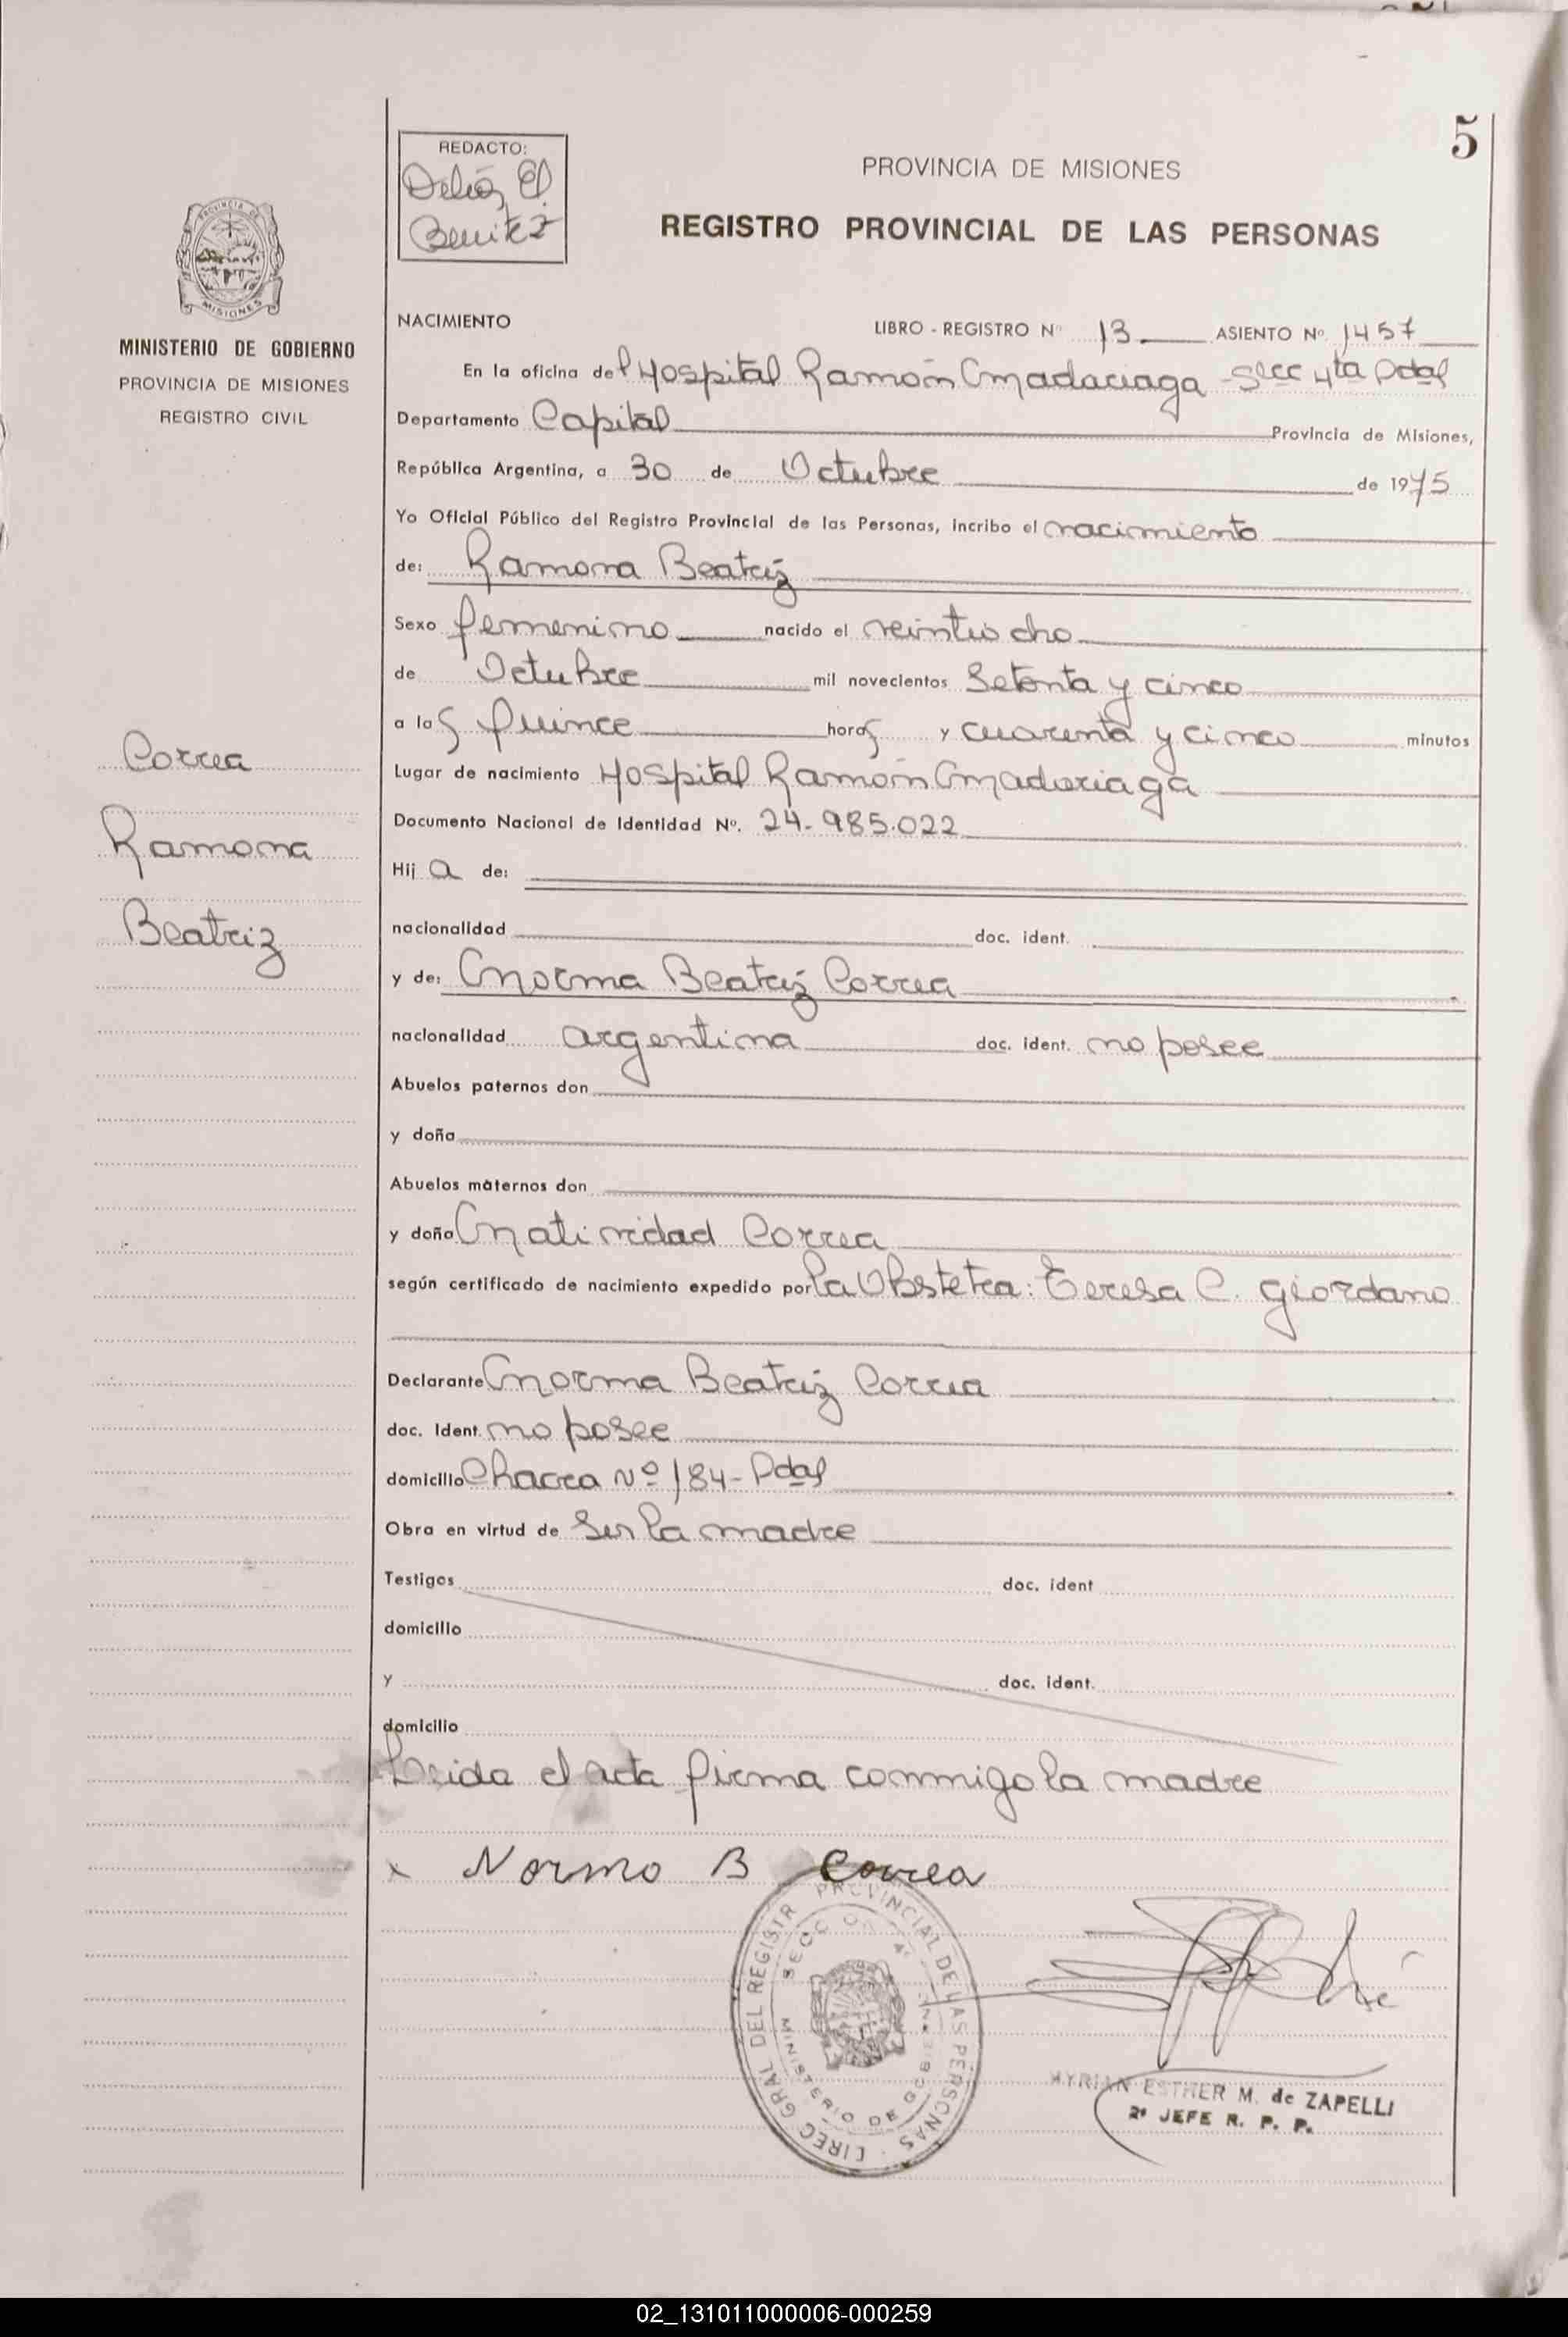 5
REDACTO:
Delia El.
Benitez
PROVINCIA DE MISIONES
REGISTRO PROVINCIAL DE LAS PERSONAS
PROVINCIA DE
MISIONES
MINISTERIO DE GOBIERNO
PROVINCIA DE MISIONES
REGISTRO CIVIL
Correa
Ramona
Beatriz
NACIMIENTO LIBRO - REGISTRO Nº 13 ASIENTO Nº 1457
En la oficina del Hospital Ramón Madariaga - Secc 4ta Pdas
Departamento Capital Provincia de Misiones,
República Argentina, a 30 de Octubre de 1975
Yo Oficial Público del Registro Provincial de las Personas, incribo el nacimiento
de: Ramona Beatriz
Sexo femenino nacido el veintiocho
de Octubre mil novecientos Setenta y cinco
a las quince horas y cuarenta y cinco minutos
Lugar de nacimiento Hospital Ramón Madariaga
Documento Nacional de Identidad Nº. 24.985.022
Hij a de:
nacionalidad doc. ident.
y de: Norma Beatriz Correa
nacionalidad argentina doc. ident. no posee
Abuelos paternos don
y doña
Abuelos maternos don
y doña Natividad Correa
según certificado de nacimiento expedido por la Obstetra: Teresa C. Giordano
Declarante Norma Beatriz Correa
doc. Ident. no posee
domicilio Chacra Nº 184- Pdas
Obra en virtud de Ser la madre
Testigos doc. ident
domicilio
y doc. ident.
domicilio
Leida el acta firma conmigo la madre
x Norma B Correa
DIREC GRAL DEL REGISTR PROVINCIAL DE LAS PERSONAS
MINISTERIO DE GOBIERNO
MYRIAN ESTHER M. de ZAPELLI
2º JEFE R. P. P.
02_131011000006-000259